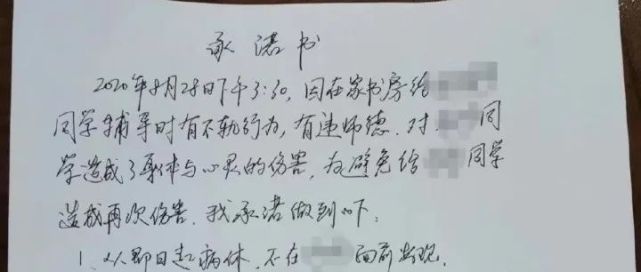 承诺书
2020年8月28日下午3:30,因在家书房给
同学辅导时有不轨行为,有违师德.对 同
学造成了身体与心灵的伤害,为避免给 同学
造成再次伤害.我承诺做到以下:
1、从即日起病休,不在 面前出现.